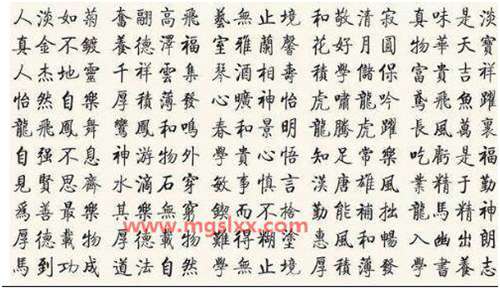 人淡如菊 奮翮高飛 藝無止境 和敬清寂 真味是淡
真金不鍍 養德澤福 室雅蘭馨 花好月圓 物華天寶
人杰地靈 千祥雲集 琴酒相壽 學儲 富貴吉祥
怡然自樂 厚積薄發 心曠神怡 虎嘯龍吟 鳶飛魚躍
龍飛鳳舞 鸞鳳和鳴 春和景明 龍騰虎躍 長風萬裏
自强不息 神游物外 學貴心悟 知足常樂 吃虧是福
見賢思齊 水滴石穿 敏事慎言 漢唐雄風 業精于勤
為善最樂 其樂無窮 鍥而不捨 勤能補拙 龍馬精神
www.mgslxx.com
厚德載物 難得糊塗 惠風和暢 入幽出朗
馬到功成 道法自然 學無止境 厚積薄發 學書養志